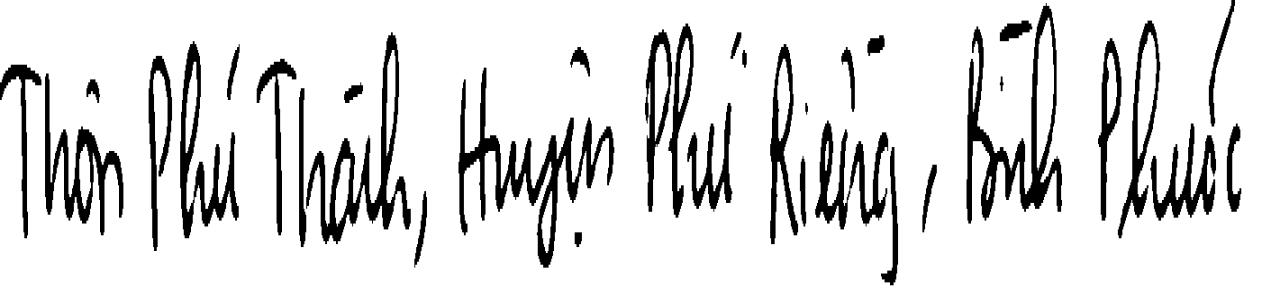 Thôn Phú Thành, Huyện Phú Riềng, Bình Phước